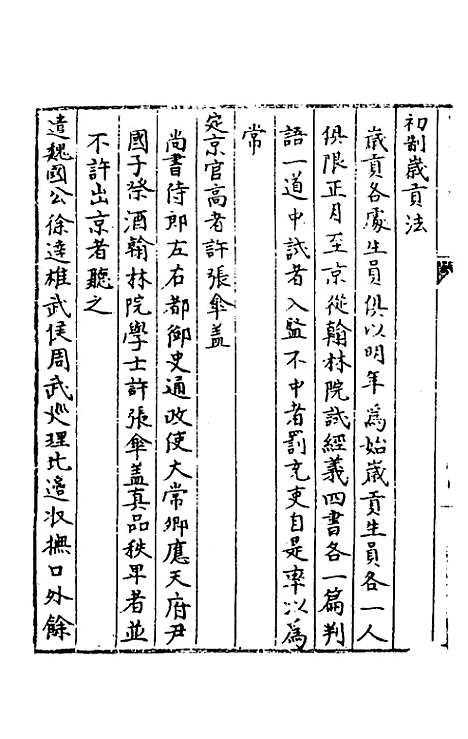 初制歲貢法
歲貢各處生員俱以明年為始歲貢生員各一人
俱限正月至京從翰林院試經義四書各一篇判
語一道中試者入監不中者罰充吏自是率以為
常
定京官高者許張傘盖
尚書侍郎左右都御史通政使大常卿應天府尹
國子祭酒翰林院學士許張傘盖真品秩卑者並
不許出京者聽之
遣魏國公徐達雄武侯周武廵理北邉収撫口外餘